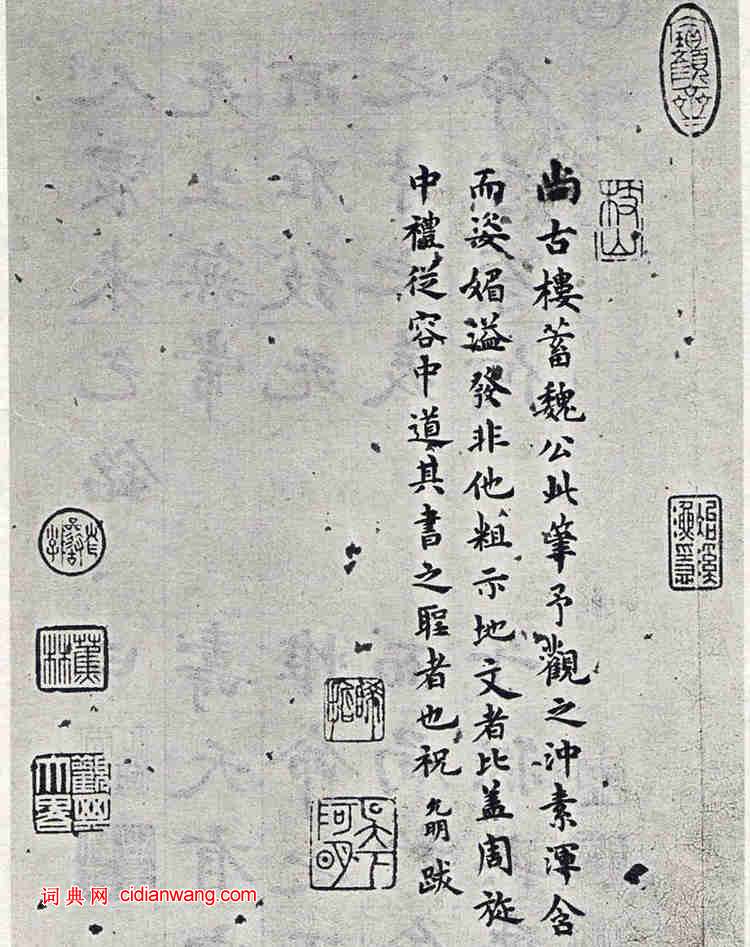 尚古樓蓄魏公此筆予觀之沖素渾含
而姿媚溢發非他粗示地文者比蓋周旋
中禮從容中道其書之聖者也祝允明跋
枝山
蕉林
词典网 cidianwang.com